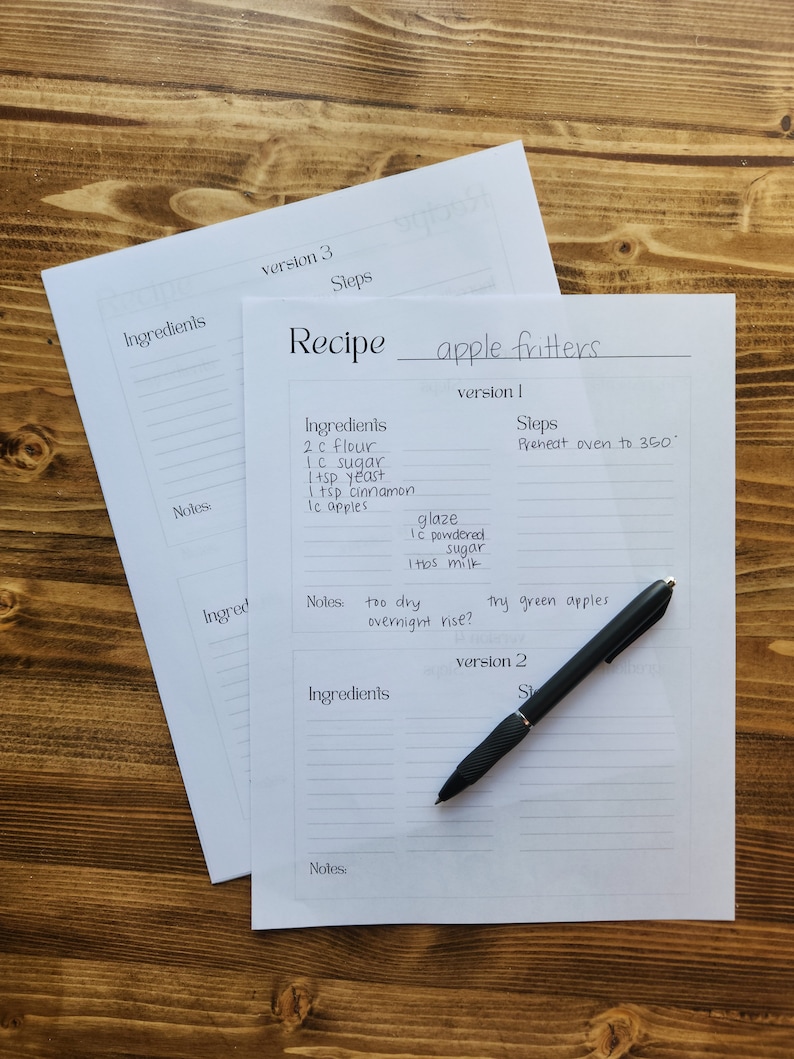 version 3
Steps
Ingredients
Notes:
Ingred
Recipe apple fritters
version 1
Ingredients
2 c flour
1 c sugar
1 tsp yeast
1 tsp cinnamon
1c apples
glaze
1c powdered
sugar
1 tbs milk
Steps
Preheat oven to 350°
Notes: too dry
overnight rise?
try green apples
version 2
Ingredients
St
Notes: